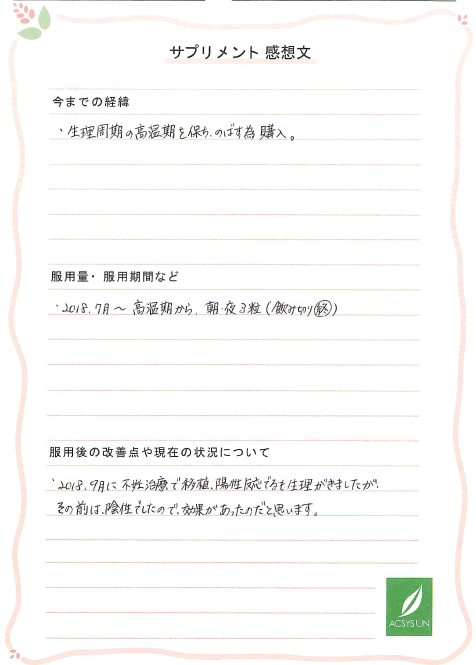 サプリメント 感想文
今までの経緯
・生理周期の高温期を保ち、のばす為 購入。
服用量・服用期間など
・2018.7月〜 高温期から、朝・夜3粒(飲み切り終)
服用後の改善点や現在の状況について
・2018.9月に不妊治療で移植、陽性反応でるも生理がきましたが、
その前は、陰性でしたので、効果があったのだと思います。
ACSYSUN